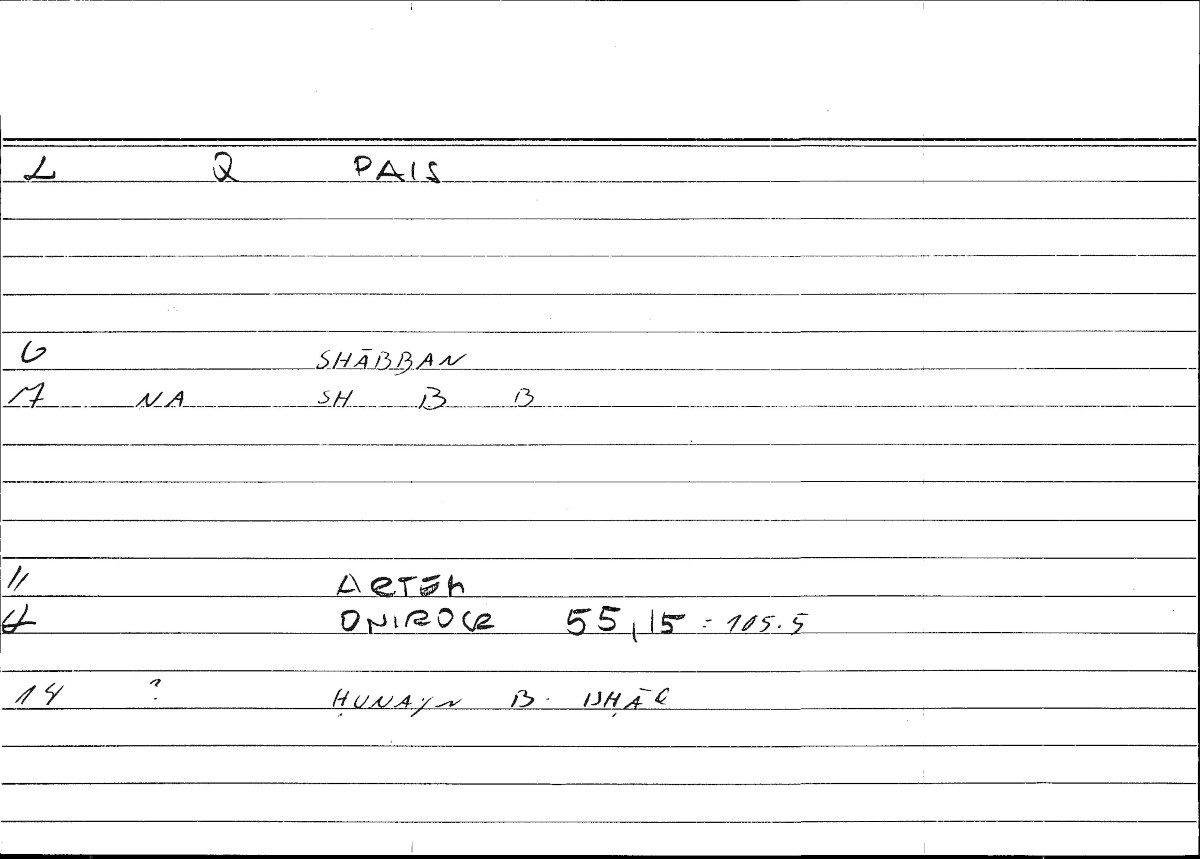 L Q PAIS
6 SHĀBBAN
7 NA SH B B
11 ARTEM
ONIROCR 55,15 = 105.5
14 ? ḤUNAYN B. ISḤĀQ